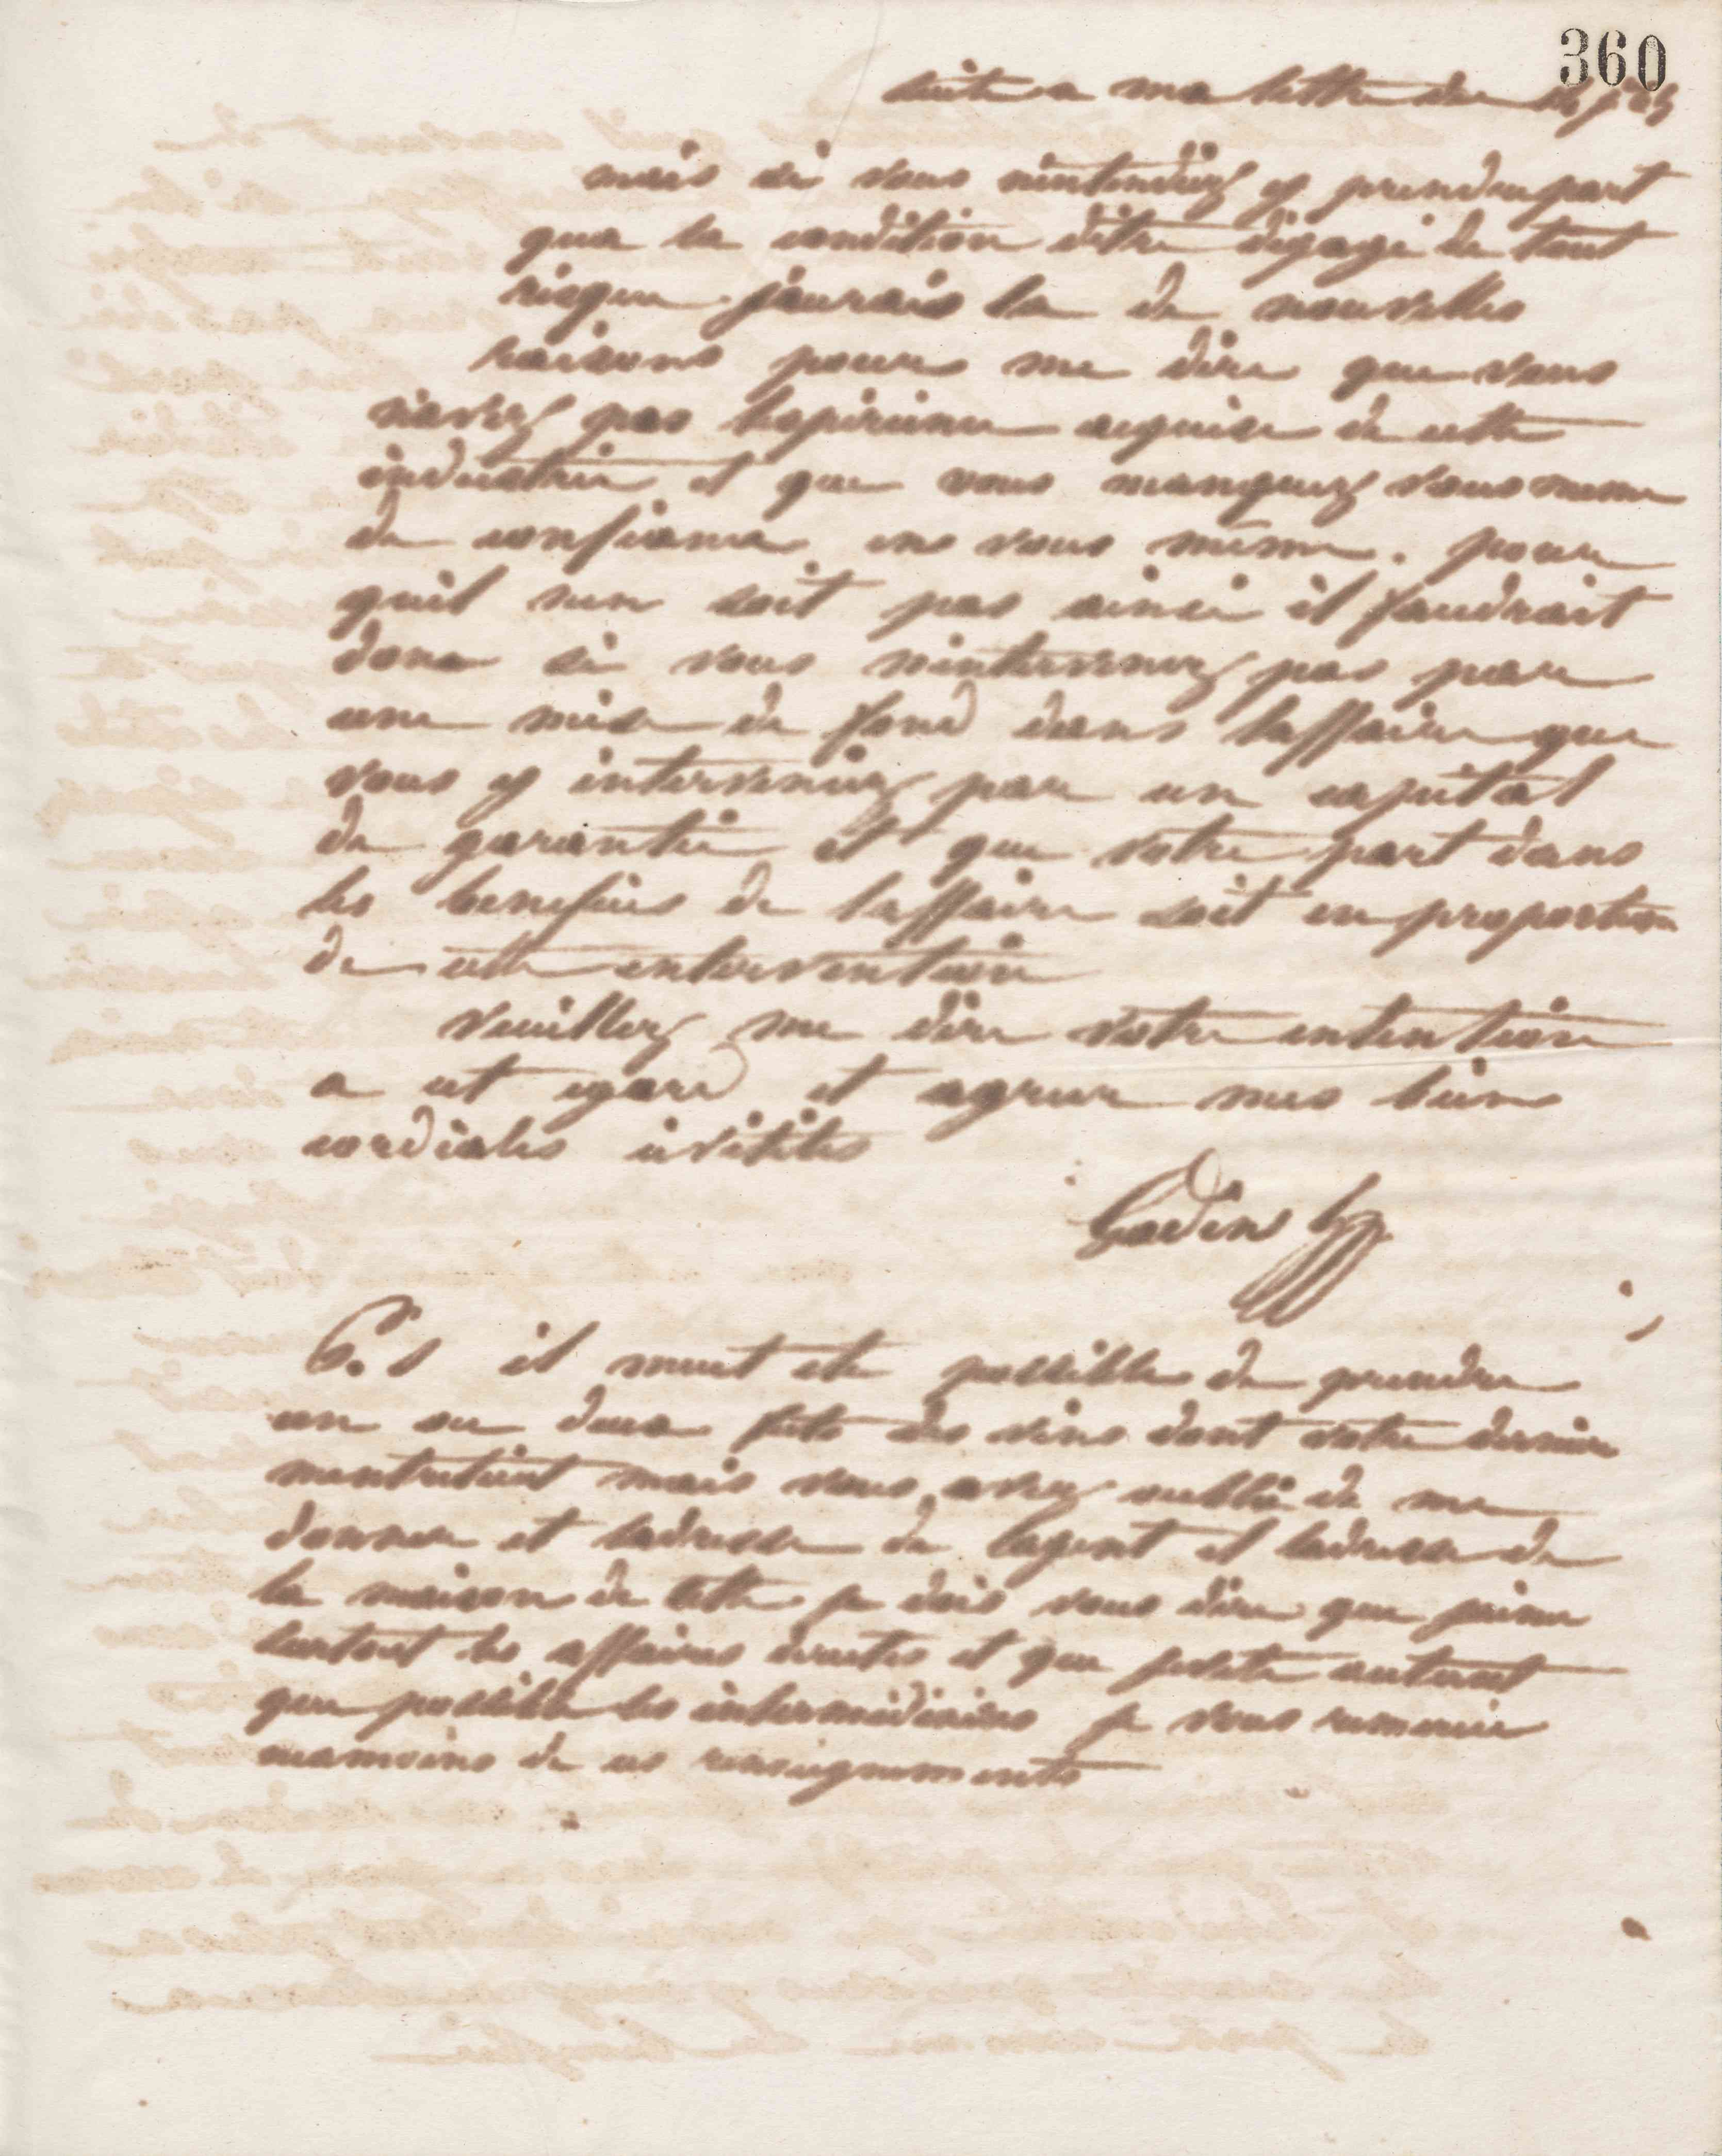 360
suite a ma lettre du
mais si vous nentendiez y prendre part
qua la condition detre dégagé de tout
risque jaurais la de nouvelles
raisons pour me dire que vous
navez pas lexperience acquise de cette
industrie et que vous manquez vous meme
de confiance en vous même. pour
quil nen soit pas ainsi il faudrait
donc si vous nintervenez pas par
une mise de fond dans laffaire que
vous y interveniez par un capital
de garantie et que votre part dans
les benefices de laffaire soit en proportion
de cette intervention
Veuillez me dire votre intention
a cet egard et agreer mes biens
cordiales civilités
Godin
P.S il meut ete possible de prendre
un ou deux futs des vins dont votre derniere
mentretient mais vous avez oublié de me
donner et ladresse de lagent et ladresse de
la maison de Cette je dois vous dire que jaime
surtout les affaires directes et que jevite autant
que possible les intermédiaires je vous remercie
neamoins de ces renseignements